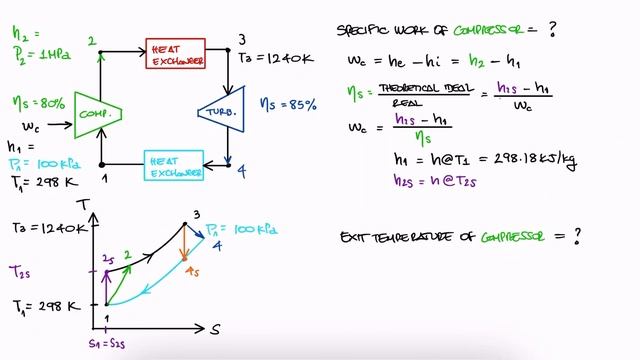 h₂ =
P₂ = 1MPa
2
HEAT EXCHANGER
3
T₃ = 1240K
ηs = 80%
COMP.
wc
TURB.
ηs = 85%
h₁ =
P₁ = 100kPa
T₁ = 298 K
1
HEAT EXCHANGER
4
T
T₃ = 1240K
T₂s
T₁ = 298 K
2s
2
3
P₁ = 100kPa
4
4s
1
S
S₁ = S₂s
SPECIFIC WORK OF COMPRESSOR = ?
wc = he - hi = h₂ - h₁
ηs = THEORETICAL IDEAL / REAL = h₂s - h₁ / wc
wc = h₂s - h₁ / ηs
h₁ = h@T₁ = 298.18 kJ/kg
h₂s = h@T₂s
EXIT TEMPERATURE OF COMPRESSOR = ?